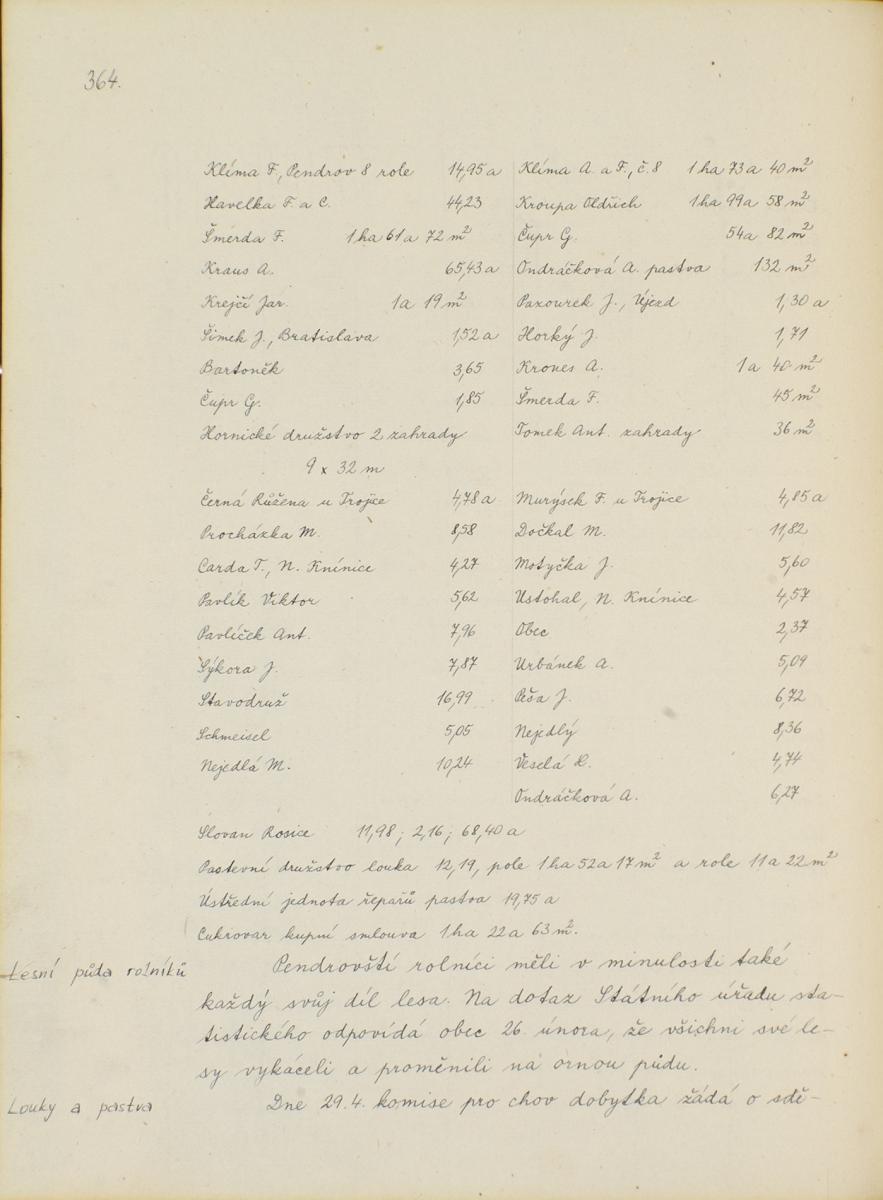 364.
Klíma F., Pendrov 8 role 14,95 a Klíma A. a F., č. 8 1 ha 73 a 40 m²
Havelka F. a C. 44,23 Kroupa Oldřich 1 ha 99 a 58 m²
Šmerda F. 1 ha 61 a 72 m² Čupr G. 54 a 82 m²
Kraus A. 65,43 a Ondráčková A. pastva 132 m²
Krejčí Jar. 1 a 19 m² Paxourek J., Újezd 1,30 a
Šimek J., Bratislava 1,52 a Horký J. 1,71
Bartoněk 3,65 Krones A. 1 a 40 m²
Čupr G. 1,85 Šmerda F. 45 m²
Hornické družstvo 2 zahrady Tomek Ant. zahrady 36 m²
9 x 32 m
Černá Růžena u Trojice 4,78 a Murýsek F. u Trojice 4,85 a
Procházka M. 8,58 Dočkal M. 11,82
Carda T., N. Knínice 4,27 Motyčka J. 5,60
Pavlík Viktor 5,62 Ustohal, N. Knínice 4,57
Pavlíček Ant. 7,96 Obec 2,37
Sýkora J. 7,87 Urbánek A. 5,09
Stavodruž 16,99 Píša J. 6,72
Schmeisel 5,05 Nejedlý 8,36
Nejedlá M. 10,24 Veselá 4,74
Ondráčková A. 6,27
Slovan Rosice 11,98; 2,16; 68,40 a
Pastevní družstvo louka 12,19, pole 1 ha 52 a 17 m² a role 11 a 22 m²
Ústřední jednota řepařů pastva 19,75 a
Cukrovar kupní smlouva 1 ha 22 a 63 m².
Lesní půda rolníků Pendrovští rolníci měli v minulosti také
každý svůj díl lesa. Na dotaz Státního úřadu sta-
tistického odpovídá obec 26. února, že všichni své le-
sy vykáceli a proměnili na ornou půdu.
Louky a pastva Dne 29.4. komise pro chov dobytka žádá o sdě-